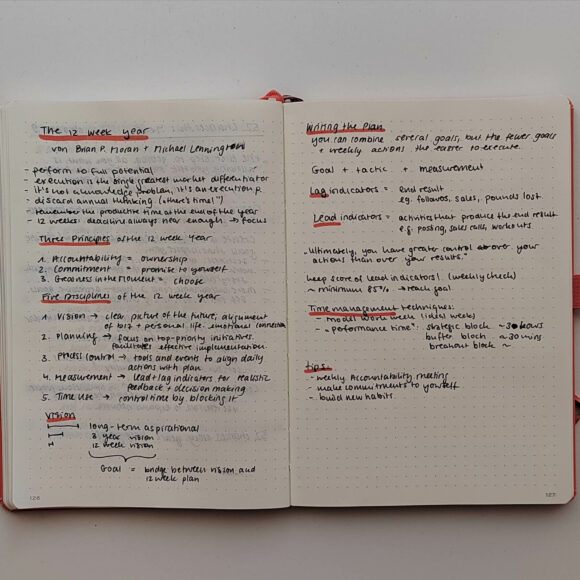 The 12 week year
von Brian P. Moran + Michael Lennington
- perform to full potential
- execution is the single greatest market differentiator
- it's not a knowledge problem, it's an execution p.
- discard annual thinking ("there's time!")
- remember the productive time at the end of the year
- 12 weeks: deadline always near enough → focus
Three Principles of the 12 week year
1. Accountability = ownership
2. Commitment = promise to yourself
3. Greatness in the moment = choose
Five Disciplines of the 12 week year
1. Vision → clear picture of the future, alignment
of biz + personal life. emotional connection
2. Planning → focus on top-priority initiatives
facilitates effective implementation
3. Process control → tools and events to align daily
actions with plan
4. Measurement → lead + lag indicators for realistic
feedback + decision making
5. Time use → control time by blocking it
Vision
long-term aspirational
3 year vision
12 week vision
Goal = bridge between vision and
12 week plan
126
Writing the Plan
you can combine several goals, but the fewer goals
+ weekly actions the easier to execute.
Goal + tactic + measurement
Lag indicators = end result
eg. followers, sales, pounds lost
Lead indicators = activities that produce the end result
e.g. posting, sales calls, workouts
"Ultimately, you have greater control over your
actions than over your results."
keep score of lead indicators! (weekly check)
~ minimum 85% → reach goal
Time management techniques:
- model work week (ideal week)
- "performance time": strategic block ~3 hours
buffer block ~30 mins
breakout block ~
tips:
- weekly Accountability meeting
- make commitments to yourself
- build new habits.
127